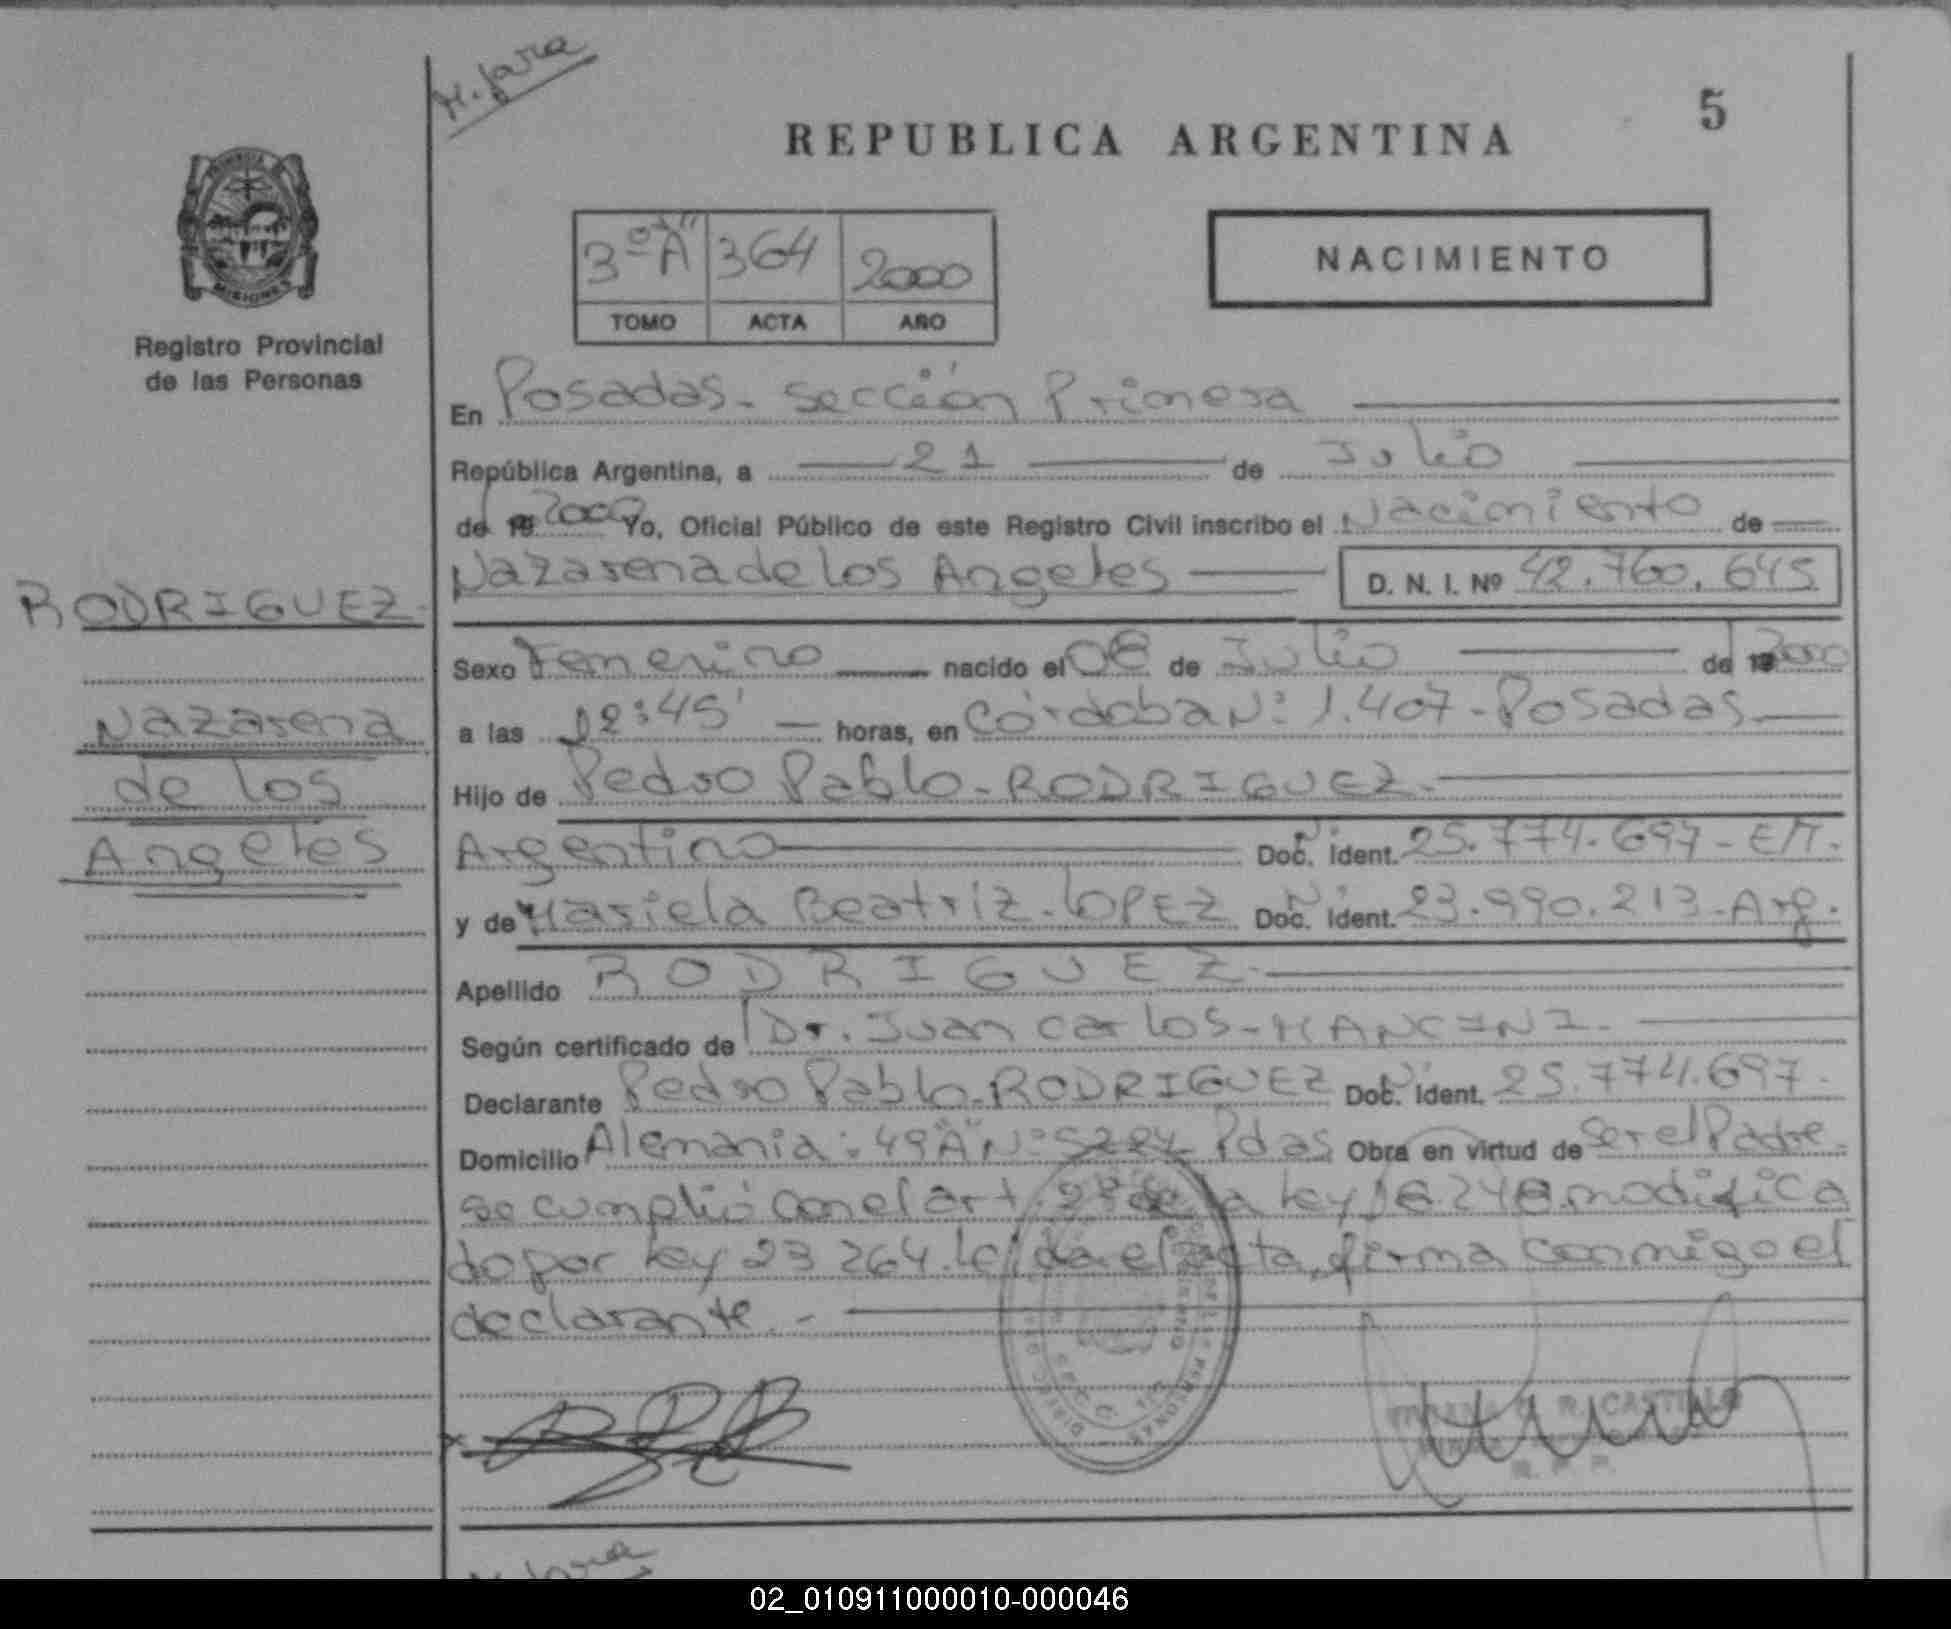 H. Jara
5
REPUBLICA ARGENTINA
MISIONES
3º "A" 364 2000
TOMO ACTA AÑO
NACIMIENTO
Registro Provincial
de las Personas
En Posadas - sección Primera
República Argentina, a 21 de Julio
de 19 2000 Yo, Oficial Público de este Registro Civil inscribo el Nacimiento de
Nazarena de los Angeles D. N. I. Nº 42.760.645
RODRIGUEZ.
Nazarena
de los
Angeles
Sexo Femenino nacido el 08 de Julio de 19 2000
a las 12:45' horas, en Córdoba Nº 1.407 - Posadas
Hijo de Pedro Pablo - RODRIGUEZ.
Argentino Doc. Ident. Nº 25.774.697 - E/T.
y de Mariela Beatriz - LOPEZ Doc. Ident. Nº 23.990.213 - Arg.
Apellido RODRIGUEZ.
Según certificado de Dr. Juan Carlos - MANCINI.
Declarante Pedro Pablo - RODRIGUEZ Doc. Ident. Nº 25.774.697.
Domicilio Alemania: 49 "A" Nº 5284 Pdas Obra en virtud de ser el Padre.
se cumplió con el art. 2º de la Ley 18.248 modifica
do por Ley 23 264. Leída el acta, firma conmigo el
declarante. -
R. CASTILLO
R. P. P.
H. Jara
02_010911000010-000046